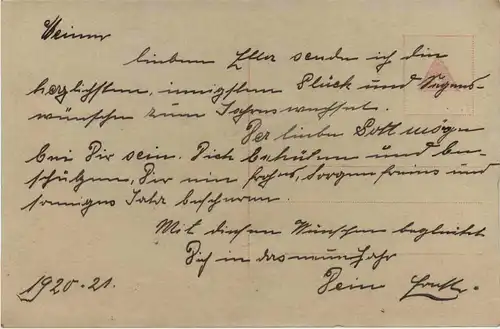 Meiner
lieben Ella sende ich die
herzlichsten, innigsten Glück und Segens-
wünsche zum Jahreswechsel.
Der liebe Gott möge
bei Dir sein. Dich behüten und be-
schützen, Dir ein frohes, sorgenfreies und
sonniges Jahr bescheren.
Mit diesen Wünschen begleitet
Dich in das neue Jahr
1920-21. Dein